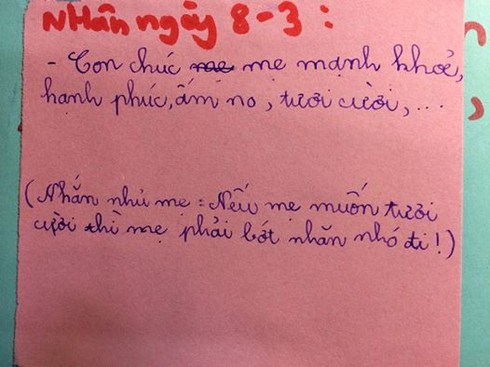 Nhân ngày 8-3 :
- Con chúc mẹ mạnh khoẻ,
hạnh phúc, ấm no, tươi cười, ...
(Nhắn nhủ mẹ : Nếu mẹ muốn tươi
cười thì mẹ phải bớt nhăn nhó đi!)